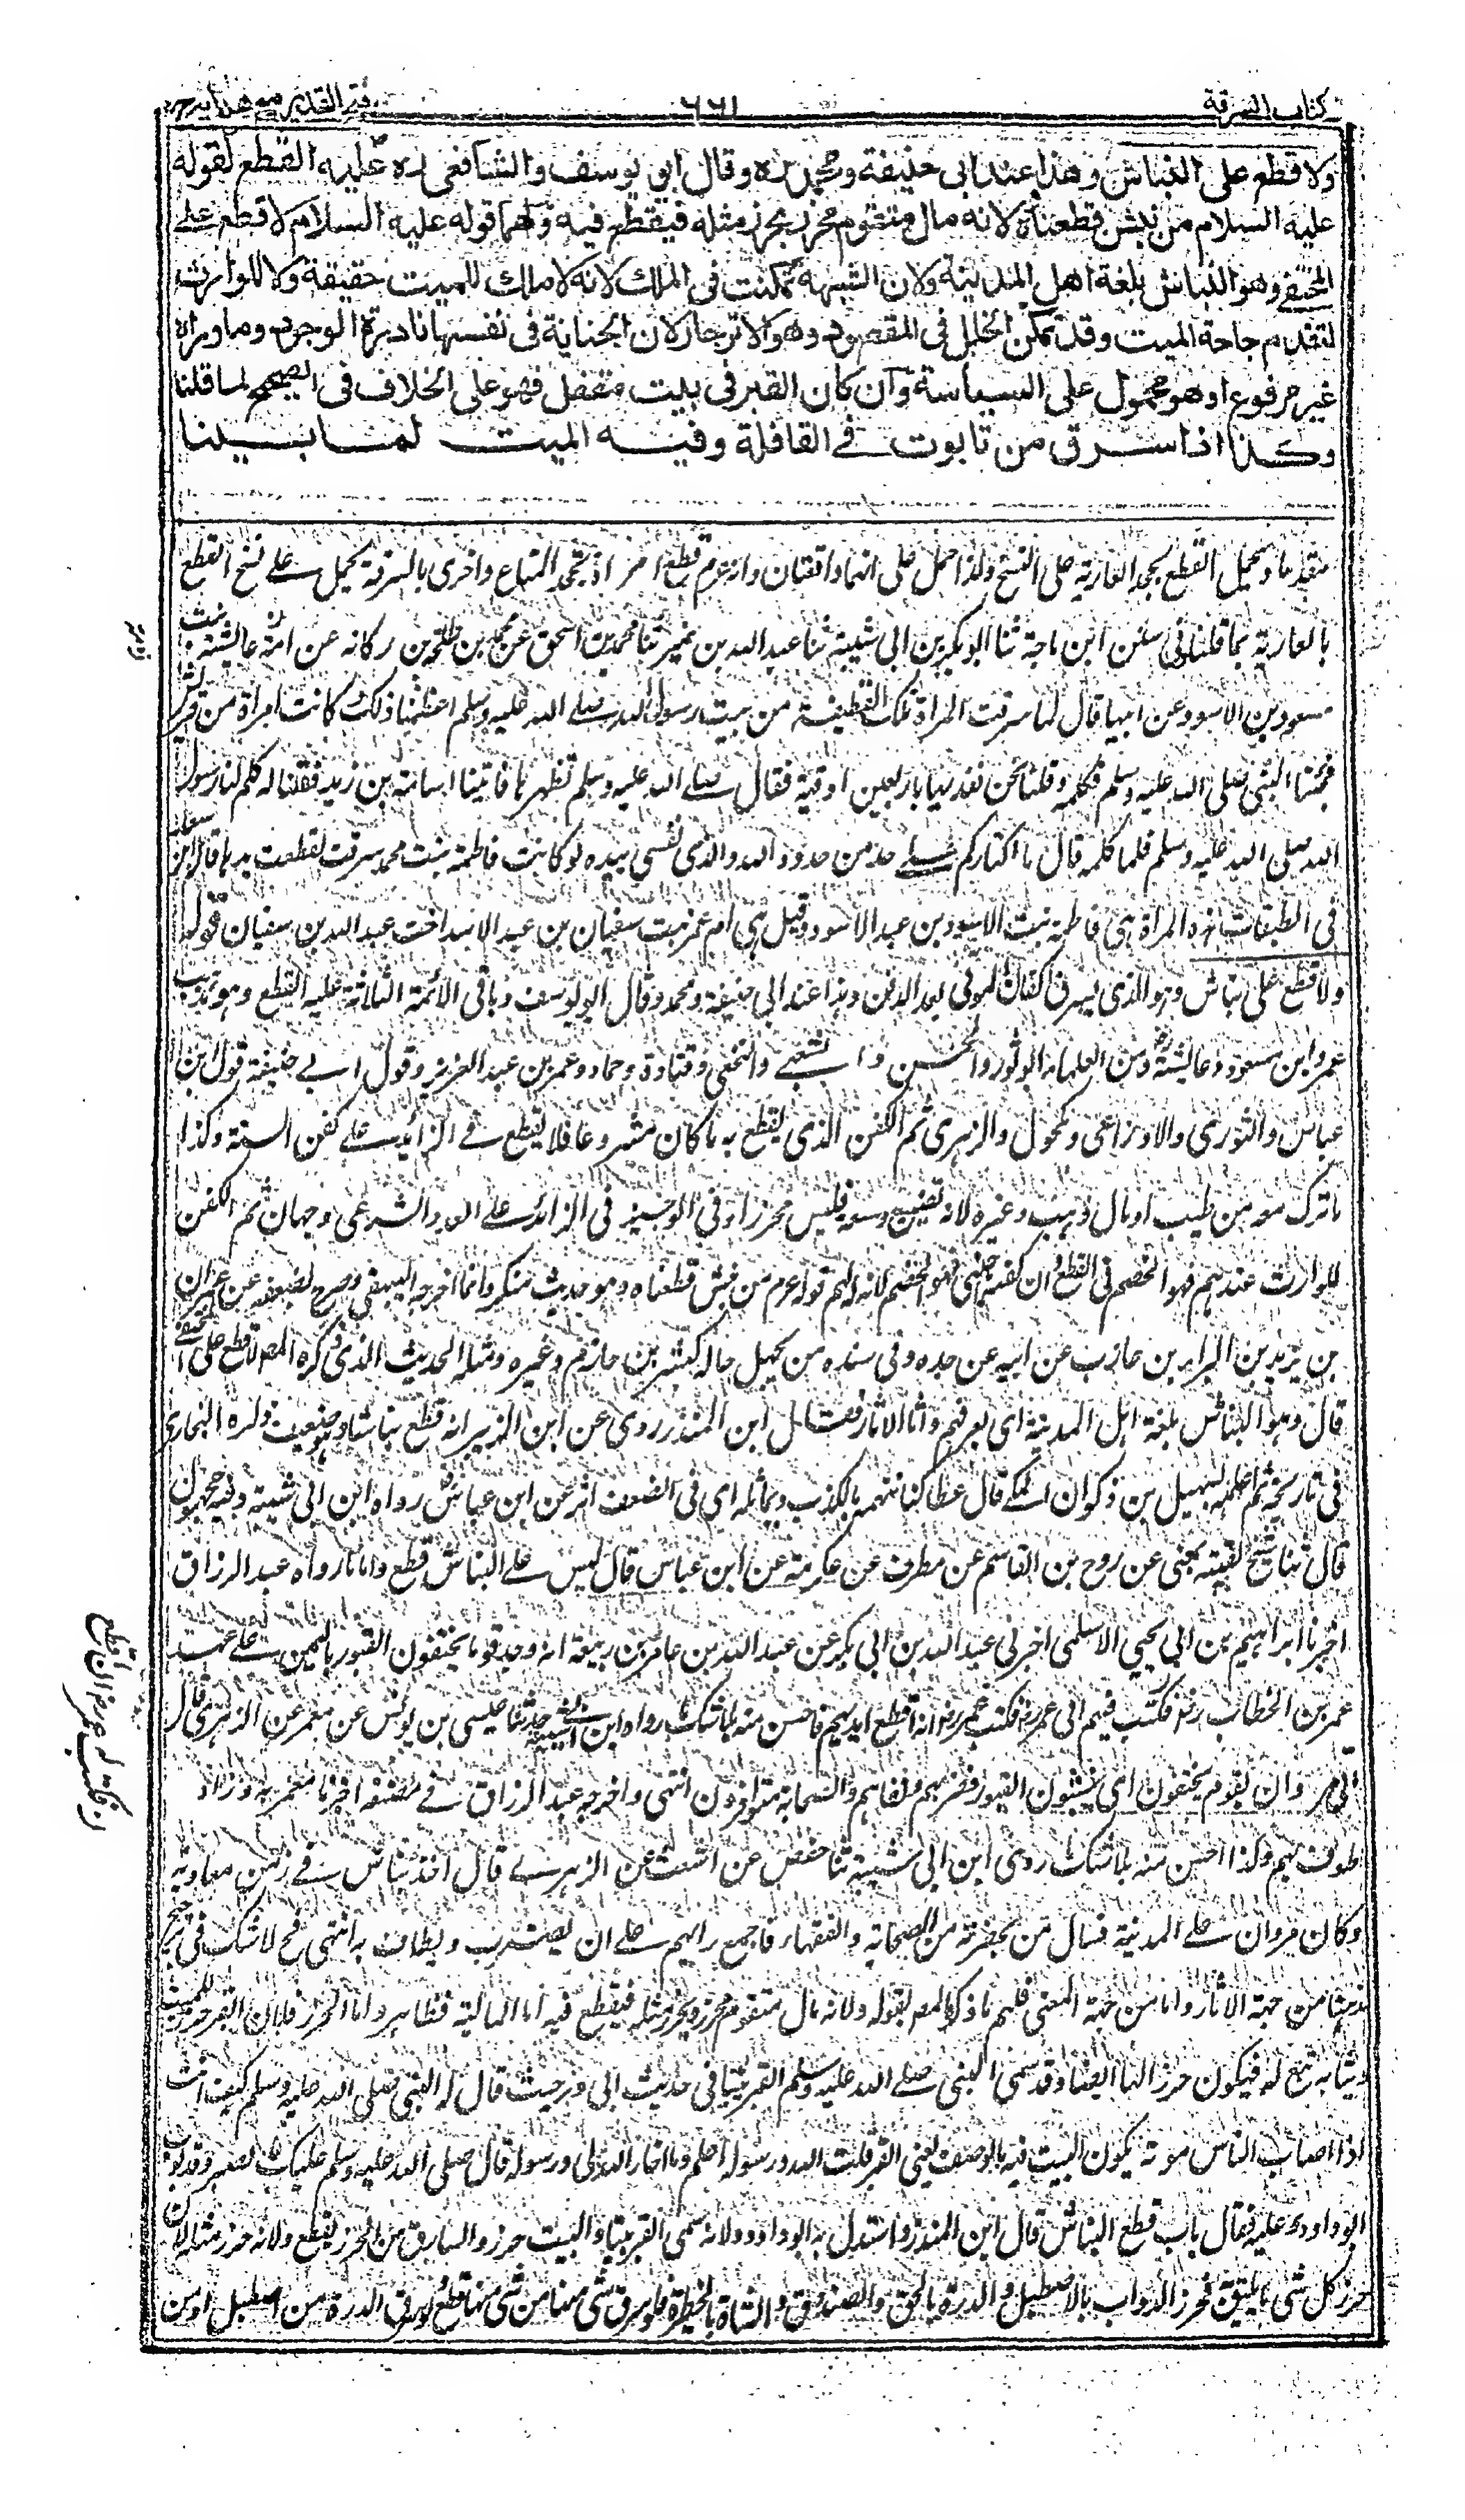 كتاب السرقة
٦٦١
فتح القدير مع هداية جـ
ولا قطع على النباش وهذا عند ابى حنيفة ومحمد ره وقال ابى يوسف والشافعى ره عليه القطع لقوله
عليه السلام من نبش قطعناه ولانه مال متقوم محرز بحرز مثله فيقطع فيه ولهما قوله عليه السلام لا قطع على
المختفى وهو النباش بلغة اهل المدينة ولان الشبهة تمكنت فى الملك لانه لا ملك للميت حقيقة ولا للوارث
لتقدم حاجة الميت وقد تمكن الخلل فى المقصود وهو الانزجار لان الجناية فى نفسها نادرة الوجود وما رواه
غير مرفوع او هو محمول على السياسة وان كان القبر فى بيت مقفل فهو على الخلاف فى الصحيح لما قلنا
وكذا اذا سرق من تابوت فى القافلة وفيه الميت لما بينا
متقدما ويحمل القطع بجحد العارية على النسخ ولذا حمل على انهما واقعتان وانه عم قطع امرأة بجحد المتاع واخرى بالسرقة يحمل على نسخ القطع
بالعارية بما قلنا وفى سنن ابن ماجة ثنا ابو بكر بن ابى شيبة ثنا عبد الله بن نمير ثنا محمد بن اسحق عن محمد بن طلحة بن ركانه عن امه عائشة بنت
مسعود بن الاسود عن ابيها قال لما سرقت المرأة تلك القطيفة من بيت رسول الله صلى الله عليه وسلم اعظمنا ذلك كانت امرأة من قريش
فجئنا النبى صلى الله عليه وسلم نكلمه وقلنا نحن نفديها باربعين اوقية فقال صلى الله عليه وسلم تطهر ها فاتينا اسامة بن زيد فقلنا له كلم لنا رسول
الله صلى الله عليه وسلم فلما كلمه قال ما اكثاركم على حد من حدود الله والذى نفسى بيده لو كانت فاطمة بنت محمد سرقت لقطعت يدها قال ابن سعد
فى الطبقات هذه المرأة هى فاطمة بنت الاسود بن عبد الاسود وقيل هى ام عمر بنت سفيان بن عبد الاسد اخت عبد الله بن سفيان قوله
ولا قطع على نباش وهو الذى يسرق اكفان الموتى بعد الدفن وهذا عند ابى حنيفة ومحمد وقال ابو يوسف وباقى الائمة الثلاثة عليه القطع وهو مذهب
عمر وابن مسعود وعائشة رض ومن العلماء ابو ثور والحسن والشعبى والنخعى وقتادة وحماد وعمر بن عبد العزيز وقول ابى حنيفة قول ابن
عباس والثورى والاوزاعى ومكحول والزهرى ثم الكفن الذى يقطع به ما كان مشروعا فلا يقطع فى الزائد على كفن السنة وكذا
ما ترك معه من طيب او مال ذهب وغيره لانه تضييع وسفه فليس محرزا وفى الوجيز فى الزائد على العدد الشرعى وجهان ثم الكفن
للوارث عندهم فهو الخصم فى القطع وان كفنه اجنبى فهو الخصم لانه له لهم قوله عم من نبش قطعناه وهو حديث منكر وانما اخرجه البيهقى وصرح بضعفه عن عمران
بن يزيد بن البراء بن عازب عن ابيه عن جده وفى سنده من يجهل حاله كبشر بن حازم وغيره ومثله الحديث الذى ذكره المص لا قطع على المختفى
قال وهو النباش بلغة اهل المدينة اى بعرفهم واما الاثار فقال ابن المنذر روى عن ابن الزبير انه قطع نباشا وهو ضعيف ذكره البخارى
فى تاريخه ثم اعله بسهيل بن ذكوان المكى قال عطا كنا نتهمه بالكذب ويماثله اى فى الضعف اثر عن ابن عباس رواه ابن ابى شيبة وفيه مجهول
قال ثنا شيخ لقيته بمنى عن روح بن القاسم عن مطرف عن عكرمة عن ابن عباس قال ليس على النباش قطع واما ما رواه عبد الرزاق
اخبرنا ابراهيم بن ابى يحيى الاسلمى اخبرنى عبد الله بن ابى بكر عن عبد الله بن عامر بن ربيعة انه وجد قوما يختفون القبور باليمن على عهد
عمر بن الخطاب رض فكتب فيهم الى عمر رض فكتب عمر رض انه اقطع ايديهم فاحسن منه بلا شك ما رواه ابن ابى شيبة حدثنا عيسى بن يونس عن معمر عن الزهرى قال
اتى مروان بقوم يختفون اى ينبشون القبور فضربهم ونفاهم والصحابة متوافرون انتهى واخرجه عبد الرزاق فى مصنفه اخبرنا معمر به وزاد
وطوف بهم وكذا احسن منه بلا شك ما روى ابن ابى شيبة ثنا حفص عن اشعث عن الزهرى قال اخذ نباش فى زمن معاوية
وكان مروان على المدينة فسأل من بحضرته من الصحابة والفقهاء فاجمع رايهم على ان يضرب ويطاف به انتهى فح لا شك فى ترجيح
مذهبنا من جهة الاثار واما من جهة المعنى فلهم ما ذكره المص بقوله ولانه مال متقوم محرز بحرز مثله فيقطع فيه اما المالية فظاهر واما الحرز فلان القبر حرز للميت
وثيابه تبع له فيكون حرزا لها ايضا وقد سمى النبى صلى الله عليه وسلم القبر بيتا فى حديث ابى ذر حيث قال له النبى صلى الله عليه وسلم كيف انت
اذا اصاب الناس موت يكون البيت فيه بالوصيف يعنى القبر قلت الله ورسوله اعلم وما اختار الله لى ورسوله قال صلى الله عليه وسلم عليك بالصبر وقد بوب
ابو داود عليه فقال باب قطع النباش قال ابن المنذر واستدل به ابو داود لانه سمى القبر بيتا والبيت حرز والسارق من الحرز يقطع ولانه حرز مثله لان
حرز كل شى ما يليق به فحرز الدواب بالاصطبل والدرة بالحق والصندوق والشاة بالحظيرة فلو سرق شى منا من شى منها قطع لو سرق الدرة من اصطبل او من